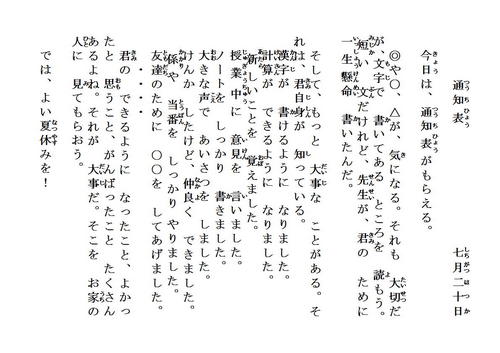 通知表
七月二十日
今日は、通知表がもらえる。
◎や〇、△が、気になる。それも 大切だ
が、文字で 書いてある ところを 読もう。
短い 文だけれど、先生が、君の ために
一生懸命 書いたんだ。
そして、もっと 大事な ことがある。そ
れは、君自身が 知っている。
漢字が 書けるように なりました。
計算が できるように なりました。
新しいことを 覚えました。
授業中に 意見を 言いました。
ノートを しっかり 書きました。
大きな声で あいさつを しました。
けんか したけど、仲良く できました。
係や 当番を しっかり やりました。
友達のために 〇〇を してあげました。
・・・・
君の できるように なったこと、よかっ
たと 思うこと、がんばったこと たくさん
あるよね。それが 大事だ。そこを お家の
人に 見てもらおう。
では、よい夏休みを！